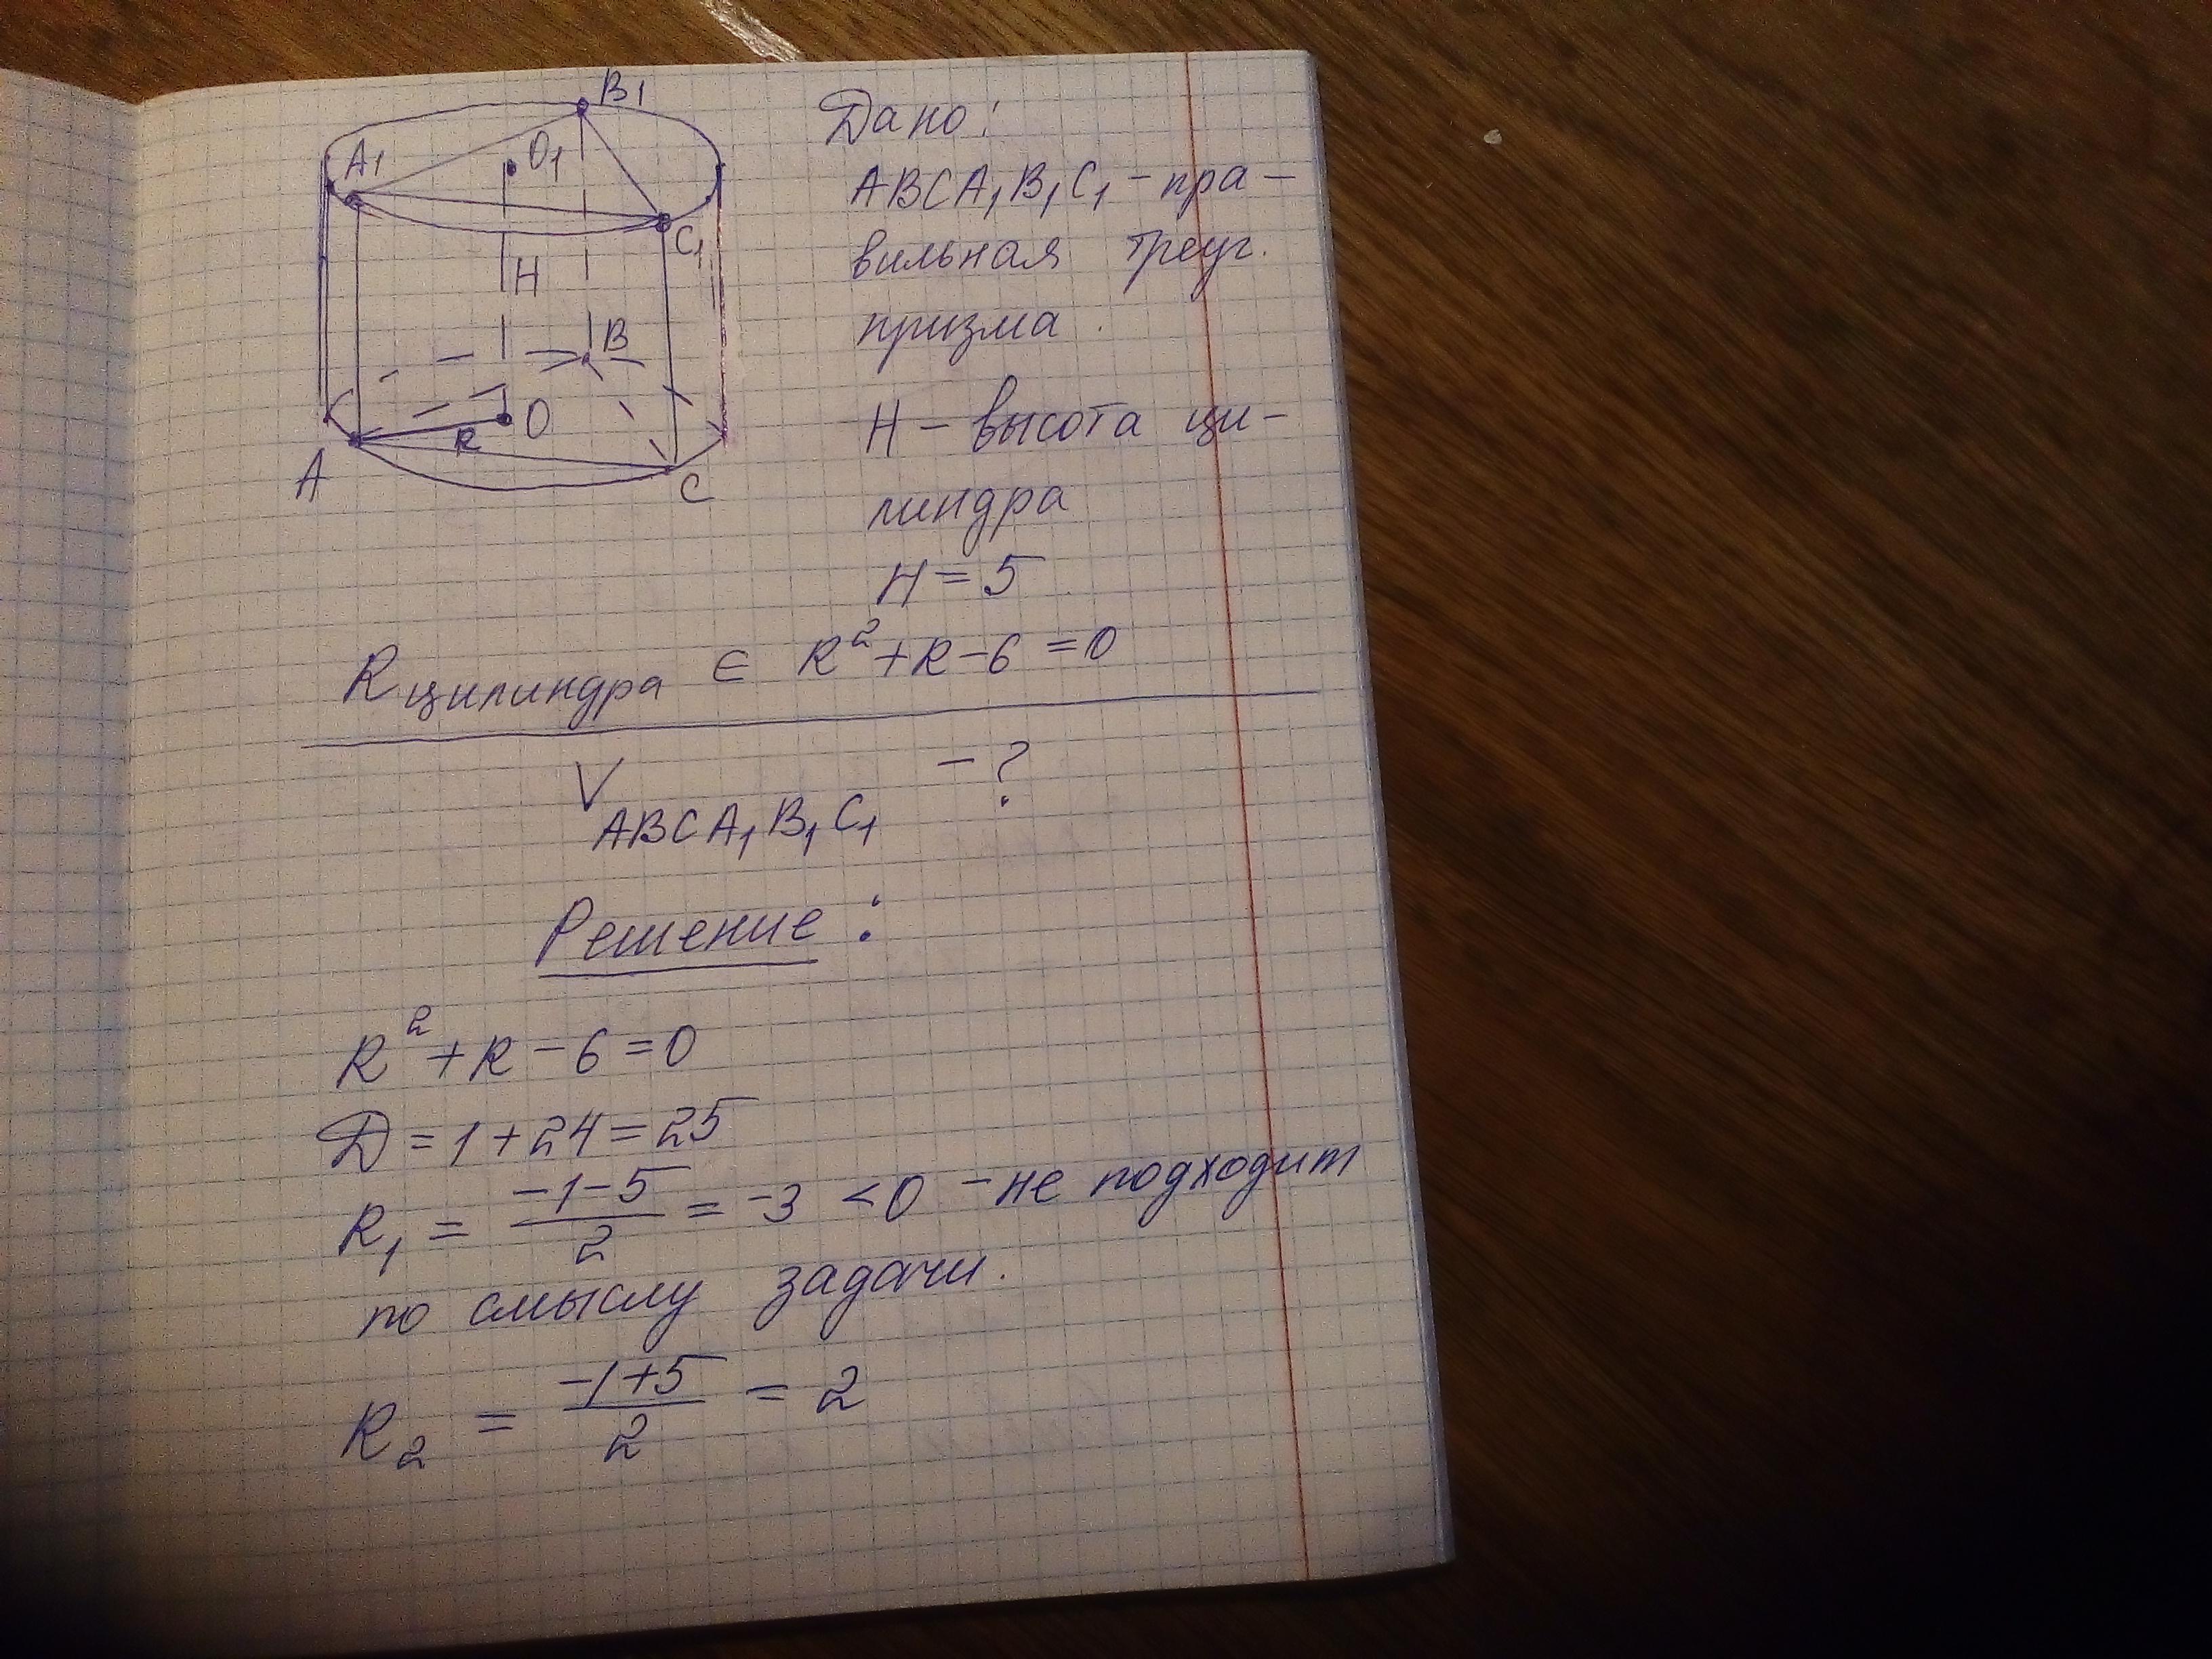 B1
A1
O1
C1
H
B
O
R
A
C
Дано:
ABCA₁B₁C₁ – пра–
вильная треуг.
призма.
H – высота ци–
линдра
H = 5
R цилиндра ∈ R² + R – 6 = 0
V ABCA₁B₁C₁ – ?
Решение:
R² + R – 6 = 0
Д = 1 + 24 = 25
R₁ = (–1–5)/2 = –3 < 0 – не подходит
по смыслу задачи.
R₂ = (–1+5)/2 = 2